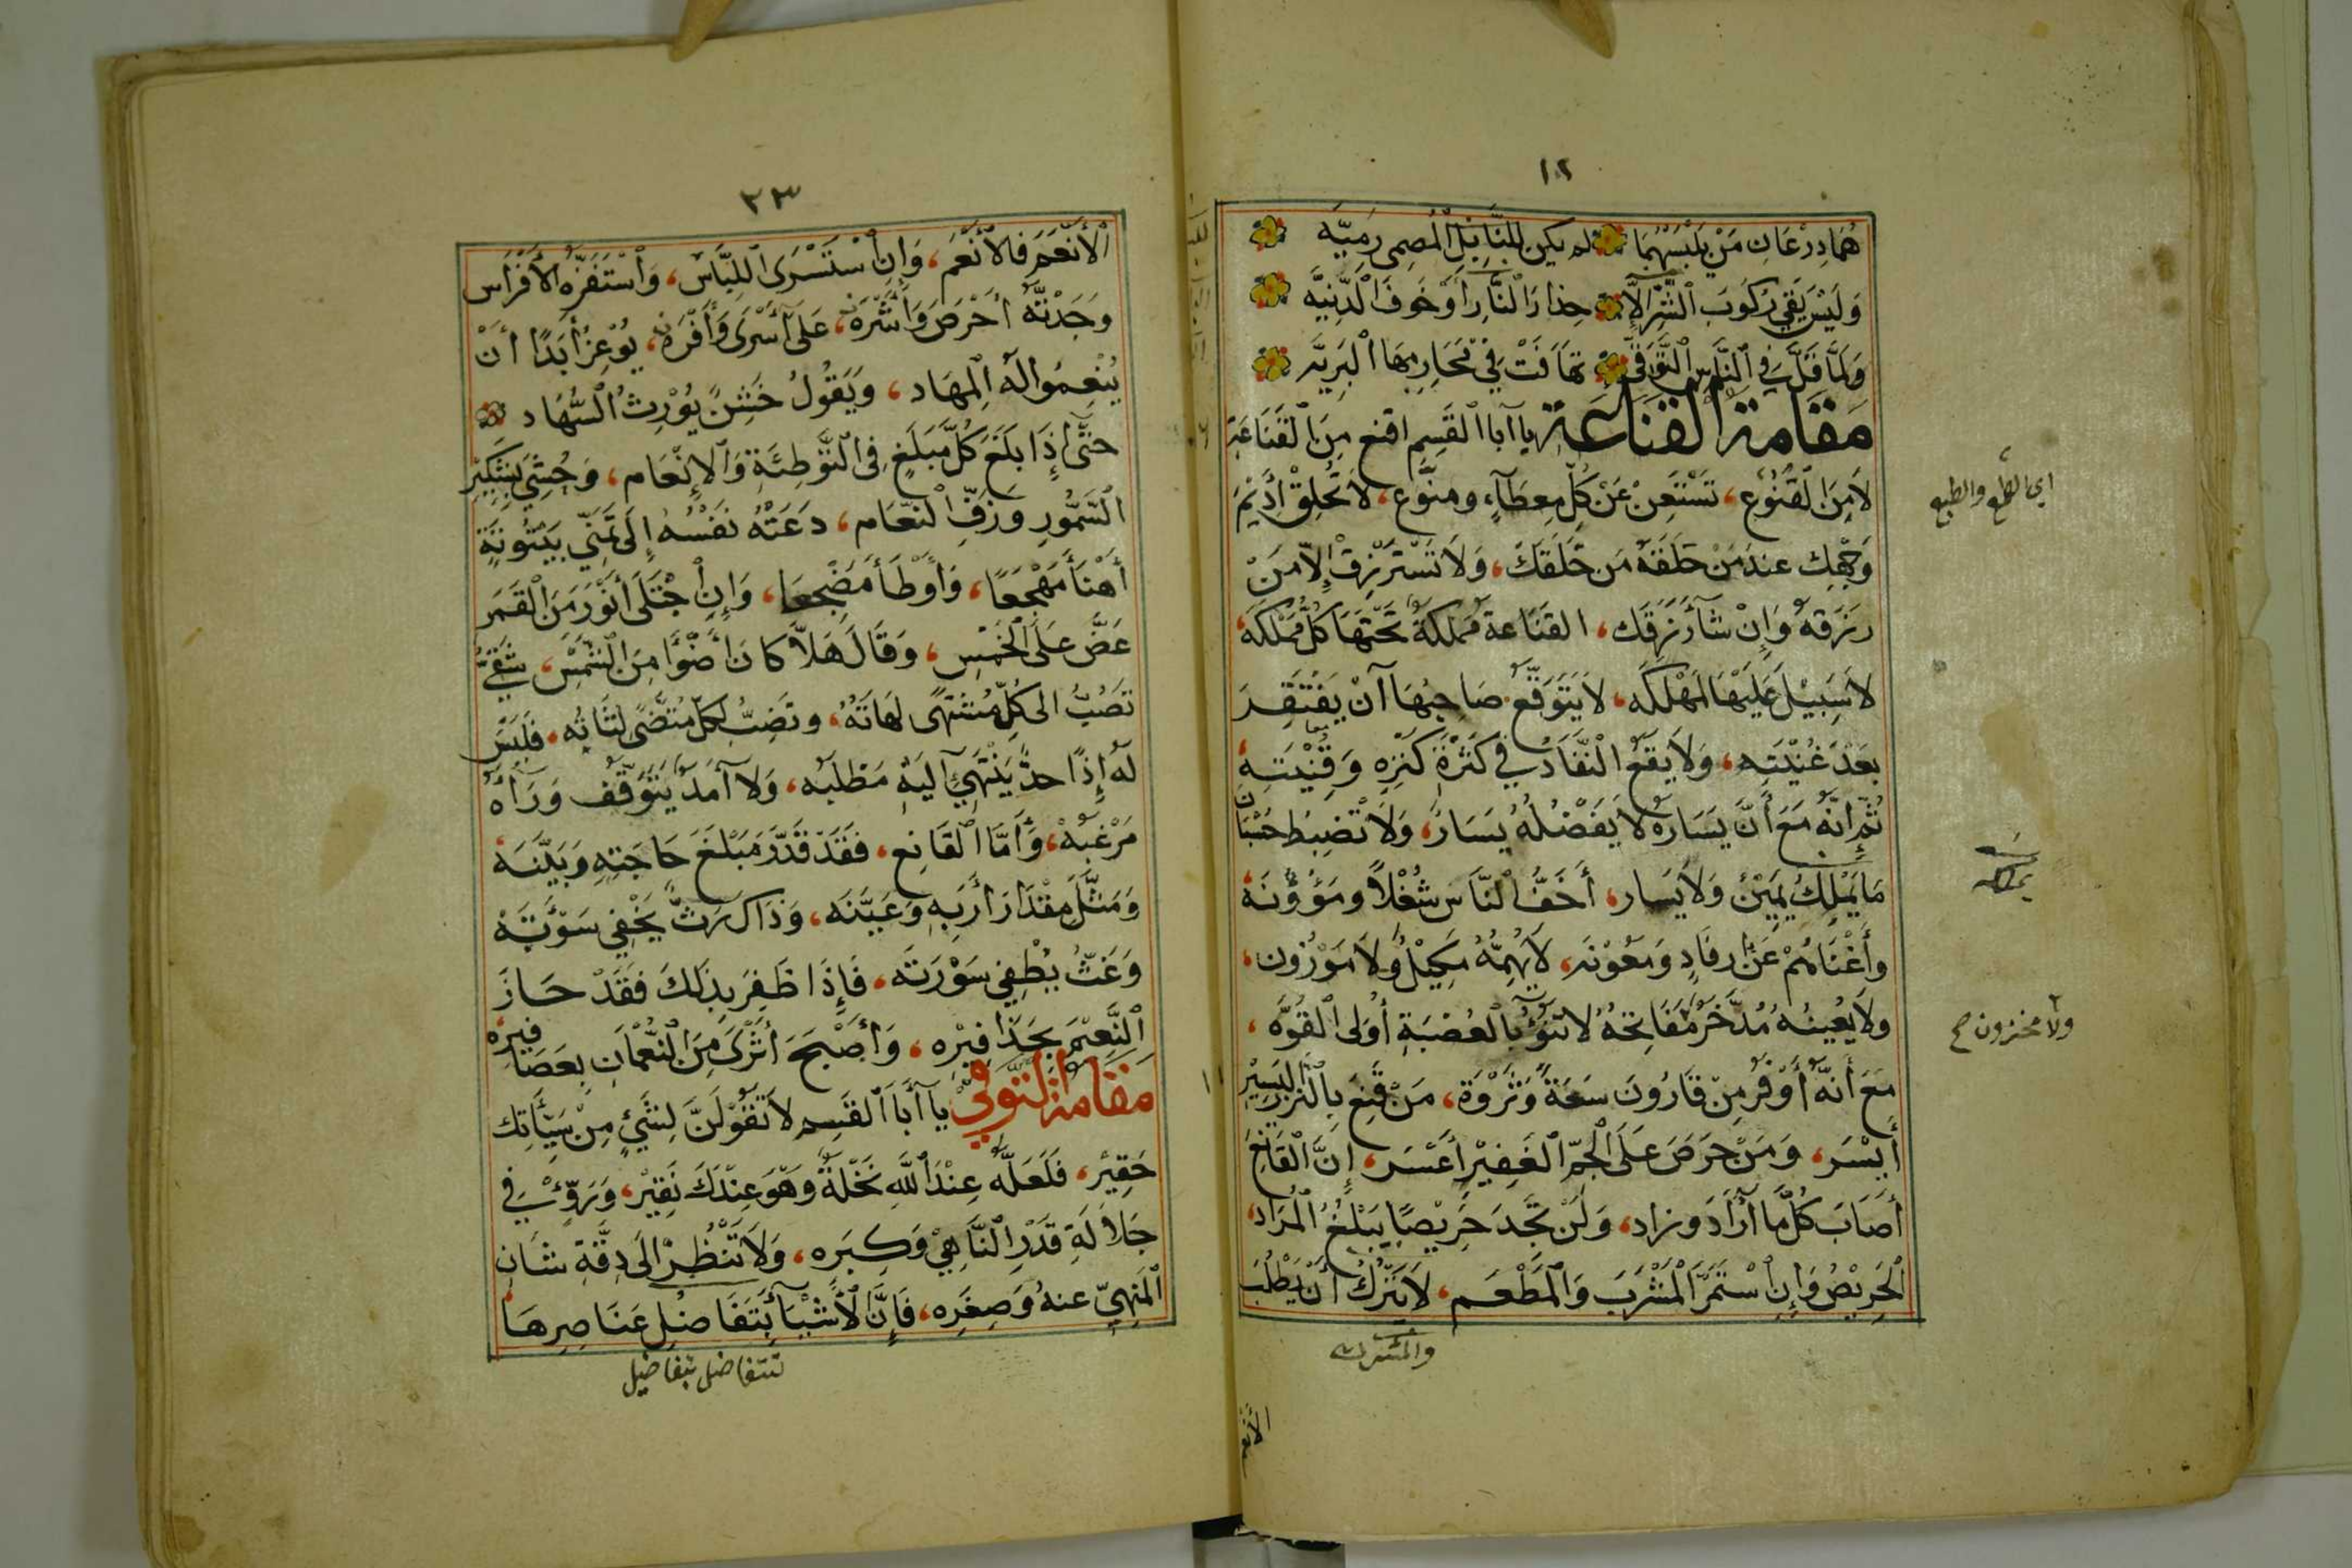 ١٢
هُمَا دِرْعَانِ مَنْ يَلْبَسْهُمَا لم يكن لِلنَّابِلِ الْمُصمِى رَمِيَّه
وَلَيْسَ يَقِي رُكُوبَ الشَّرِّ إِلَّا حِذَارَ النَّارِ أَوْ خَوفَ الدَّنِيَّه
وَلَمَّا قَلَّ فِي النَّاسِ التَّوَقِّي تَهَافَتْ فِي مَحَارِبِهَا الْبَرِيَّه
مقامة القناعة يا أبا القَسِم اقنع مِنَ الْقَنَاعَة
لَا مِنَ الْقُنُوعِ، تَسْتَغِنْ عَنْ كُلِّ مِعطَآءٍ ومنوَّع، لَا تُخلِقْ أَدِيْمَ
وَجْهِكَ عند مَنْ خلَقَهُ مَن خَلَقَكَ، وَلَا تَسْتَرْزِقْ إِلَّا مَنْ
رَزَقَهُ وَإِنْ شآءَ رَزَقَك، القَنَاعة مَملكةٌ تَحْتَهَا كُلُّ مَمْلَكَه،
لاَ سَبِيْلَ عَلَيْهَا لِمَهْلَكَه، لَا يَتَوَقَّعُ صَاحِبُهَا أَنْ يَفْتَقِرَ
بَعْدَ غُنْيَتِهِ، وَلَا يَقَعُ النَّفَادُ فِي كَثْرَةِ كَنْزِهِ وَقِنْيَتِهِ،
ثُمَّ إِنَّهُ مَعَ أَنَّ يَسَارَهُ لَا يَفْضُلُهُ يَسَارٌ، وَلَا تَضْبِطُ حُسْبَانَ
مَا يَمْلِكُ يَمِيْنٌ وَلَا يَسَار، أَخَفُّ النَّاسِ شُغْلاً ومَؤُوْنَه،
وأَغْنَاهُمْ عَنْ رفادٍ وَمَعُوْنَه، لَا يُهِمُّهُ مَكِيْلٌ وَلَا مَوْزُون،
ولَا يَعْنِيهُ مُدَّخَرٌ مَفَاتِحُهُ لا تَنُوْءُ بِالْعُصْبَةِ أُولِى الْقُوَّه،
مَعَ أَنَّهُ أَوْفَرُ مِنْ قَارُونَ سَعَةً وَثَرْوَة، مَنْ قَنِعَ بِالنَّزْرِ الْيَسِيْرِ
أَيْسَر، وَمَنْ حَرَصَ عَلَى الْجَمِّ الْغَفِيْرِ أَعْسَر، إِنَّ الْقَانِعَ
أَصَابَ كُلَّ مَا أَرَادَ وزاد، وَلَنْ تَجِدَ حَرِيْصًا يَبْلُغُ الْمُرَاد،
الْحَرِيْصُ وَإِنِ اسْتَمَرَّ الْمَشْرَبَ وَالْمَطْعَم، لَا يَتْرُكُ أَنْ يَطْلُبَ
اي الطمع والطبع
ولا مخزون صح
الأنعم
٢٣
الْأَنْعَمَ فَالْأَنْعَم، وَإِنِ اسْتَسْرَى اللِّبَاس، وَاسْتَفْرَه الْأَفْرَاس
وَجَدْتَّهُ أَحْرَصَ وَأَشْرَه، عَلَى أَسْرَى وَأَفْرَه، يُوْعِزُ أَبَدًا أَنْ
يُنْعِمُوا لَهُ الْمِهَاد، وَيَقُولُ خَشِنٌ يُوْرِثُ السُّهَاد
حَتَّى إِذَا بَلَغَ كُلَّ مَبْلَغٍ فِي التَّوْطِئَةِ وَالْإِنْعَام، وَحُشِيَ بِشَكِيْرِ
السَّمُّورِ وَزَفِّ النَّعَام، دَعَتْهُ نَفْسُهُ إِلَى تَمَنِّي بَيْتُوتَةٍ
أَهْنَأَ مَهْجَعًا، وَأَوْطَأَ مَضْجَعًا، وَإِنِ اجْتَلَى أَنْوَرَ مَنَ الْقَمَرِ
عَضَّ عَلَى الْخَمْسِ، وَقَالَ هَلَّا كَانَ أَضْوَأَ مِنَ الشَّمْسِ، شَقِيٌّ
تَصُبُّ الى كُلِّ مُشْتَهًى لَهَاتُهُ، وتَضِبُّ لِكُلِّ مُتَمَنًّى لِثَاتُه، فَلَيْسَ
لَهُ إِذًا حدٌّ يَنْتَهِيْ إِلَيْهِ مَطْلَبُه، وَلَا أَمَدٌ يَتَوَقَّفُ وَرَآءَهُ
مَرْغَبُه، وَأَمَّا الْقَانِع، فَقَدْ قَدَّرَ مَبْلَغَ حَاجَتِهِ وَبَيَّنَه،
وَمَثَّلَ مِقْدَارَ أَرَبِه وَعَيَّنَه، وَذَاكَ رَثٌّ يُخْفِي سَوْءَتَه
وَغَثٌّ يُطْفِي سَوْرَتَه، فَإِذَا ظَفِرَ بِذَلِكَ فَقَدْ حَازَ
النَّعِيْمَ بِحَذَافِيْرِه، وَأَصْبَحَ أَثْرَى مِنَ النُّعْمَانِ بِعَصَافِيرِه،
مقامة التوقي يا أَبَا القَسِم لاَ تَقُوْلَنَّ لِشَيْءٍ مِنْ سَيِّآتِكَ
حَقِيْر، فَلَعَلَّهُ عِنْدَ اللهِ نَخْلَةٌ وَهْوَ عِنْدَكَ نَقِيْر، وَرَوِّئْ فِي
جَلاَلَةِ قَدْرِ النَّاهِيْ وَكِبَرِه، وَلَا تَنْظُرْ الَى دِقَّةِ شَانِ
الْمَنْهِيِّ عنهُ وَصِغَرِه، فَإِنَّ الْأَشْيَآءَ بِتَفَاضُلِ عَنَاصِرِهَا
تتفاضل بتفاضيل